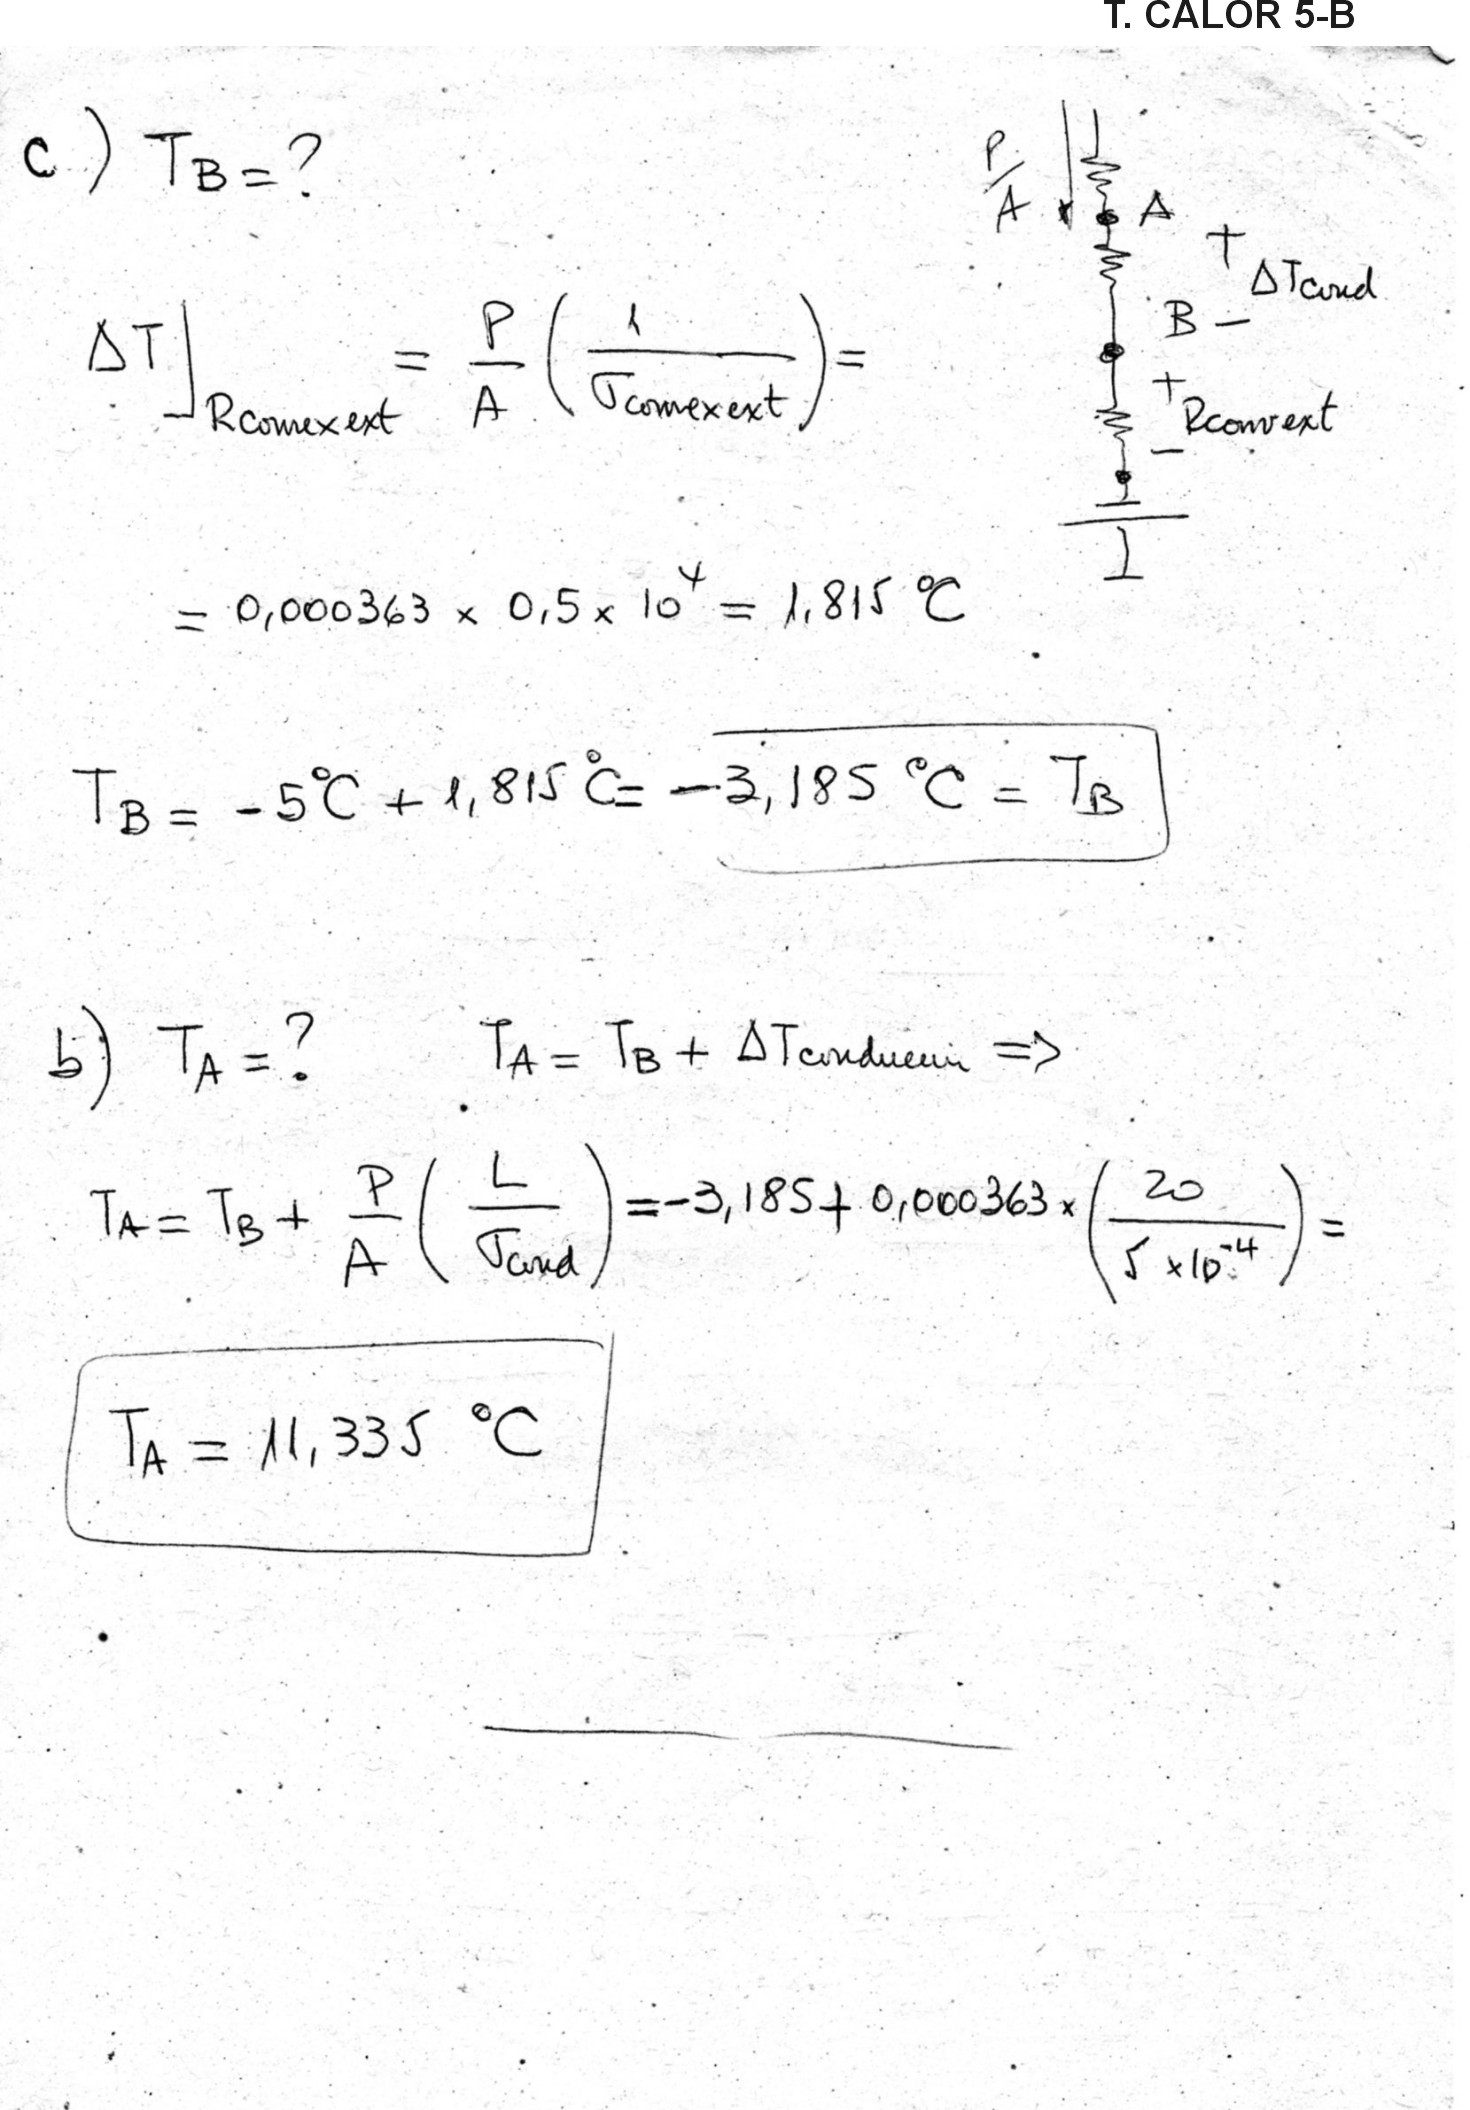 T. CALOR 5-B
c) T_B = ?
P/A
A
+
ΔTcond
B -
+
Rconvext
-
ΔT]Rconvexext = P/A (1/σconvexext) =
= 0,000363 x 0,5 x 10^4 = 1,815 °C
T_B = -5°C + 1,815°C = -3,185 °C = T_B
b) T_A = ? T_A = T_B + ΔTconducción =>
T_A = T_B + P/A (L/σcond) = -3,185 + 0,000363 x (20/5 x 10^-4) =
T_A = 11,335 °C